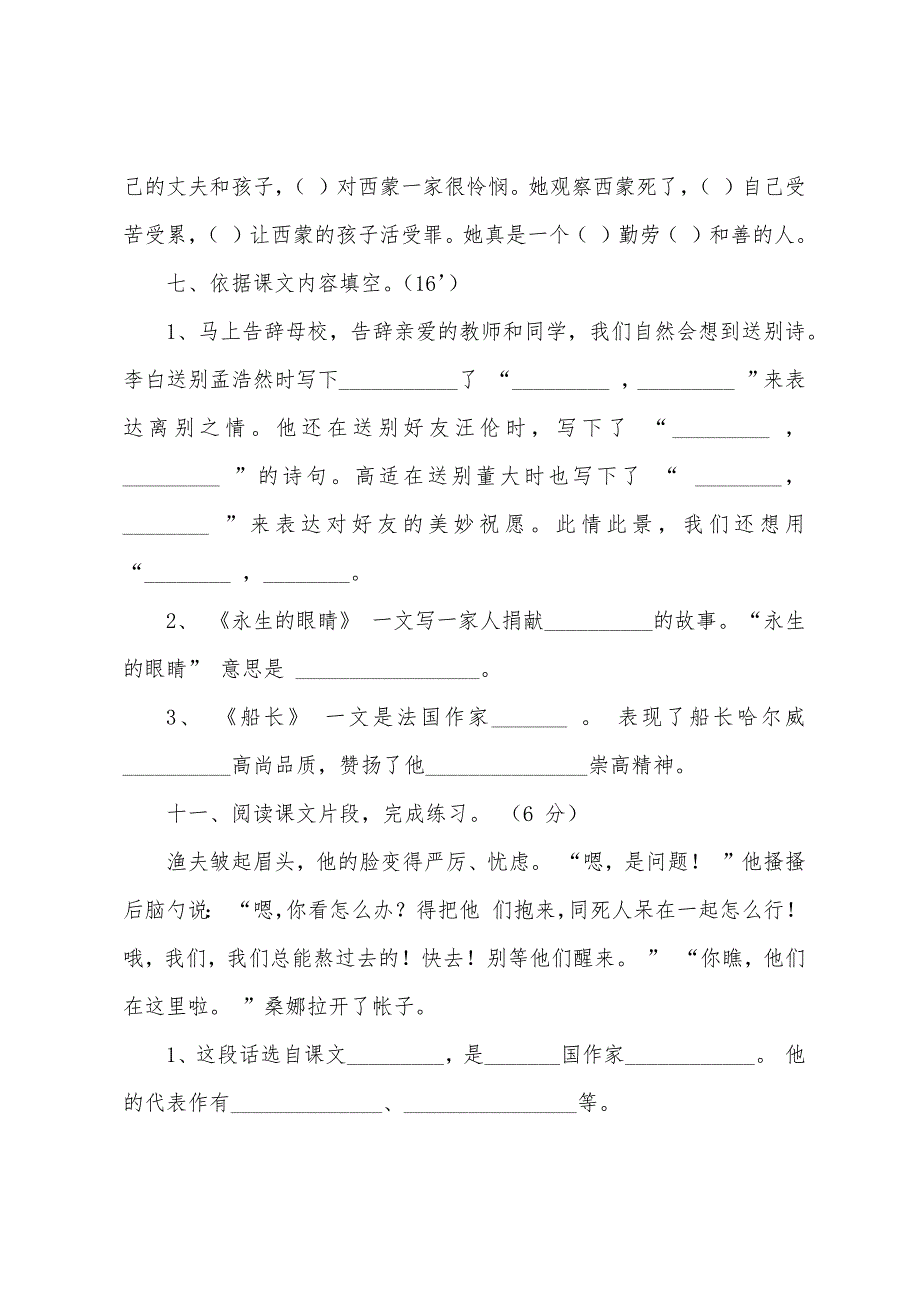 己的丈夫和孩子，（ ）对西蒙一家很怜悯。她观察西蒙死了，（ ）自己受
苦受累，（ ）让西蒙的孩子活受罪。她真是一个（ ）勤劳（ ）和善的人。
七、依据课文内容填空。（16’）
1、马上告辞母校，告辞亲爱的教师和同学，我们自然会想到送别诗。
李白送别孟浩然时写下___________了 “_________ ，_________ ”来表
达离别之情。他还在送别好友汪伦时，写下了 “_________ ，
_________ ”的诗句。高适在送别董大时也写下了 “ ________，
________ ”来表达对好友的美妙祝愿。此情此景，我们还想用
“________ ，________。
2、 《永生的眼睛》 一文写一家人捐献__________的故事。“永生
的眼睛” 意思是 _________________。
3、 《船长》 一文是法国作家_______ 。 表现了船长哈尔威
__________高尚品质，赞扬了他_______________崇高精神。
十一、阅读课文片段，完成练习。 （6 分）
渔夫皱起眉头，他的脸变得严厉、忧虑。 “嗯，是问题！ ”他搔搔
后脑勺说： “嗯，你看怎么办？得把他 们抱来，同死人呆在一起怎么行！
哦，我们，我们总能熬过去的！快去！别等他们醒来。 ” “你瞧，他们
在这里啦。 ”桑娜拉开了帐子。
1、这段话选自课文_________，是_______国作家____________。 他
的代表作有______________、________________等。